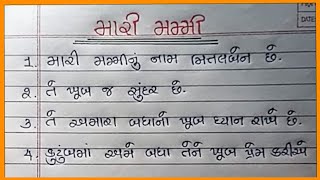 મારી મમ્મી
1. મારી મમ્મીનું નામ મિતલબેન છે.
2. તે ખૂબ જ સુંદર છે.
3. તે અમારા બધાનો ખૂબ ધ્યાન રાખે છે.
4. કુટુંબમાં અમે બધા તેને ખૂબ પ્રેમ કરીએ
DATE